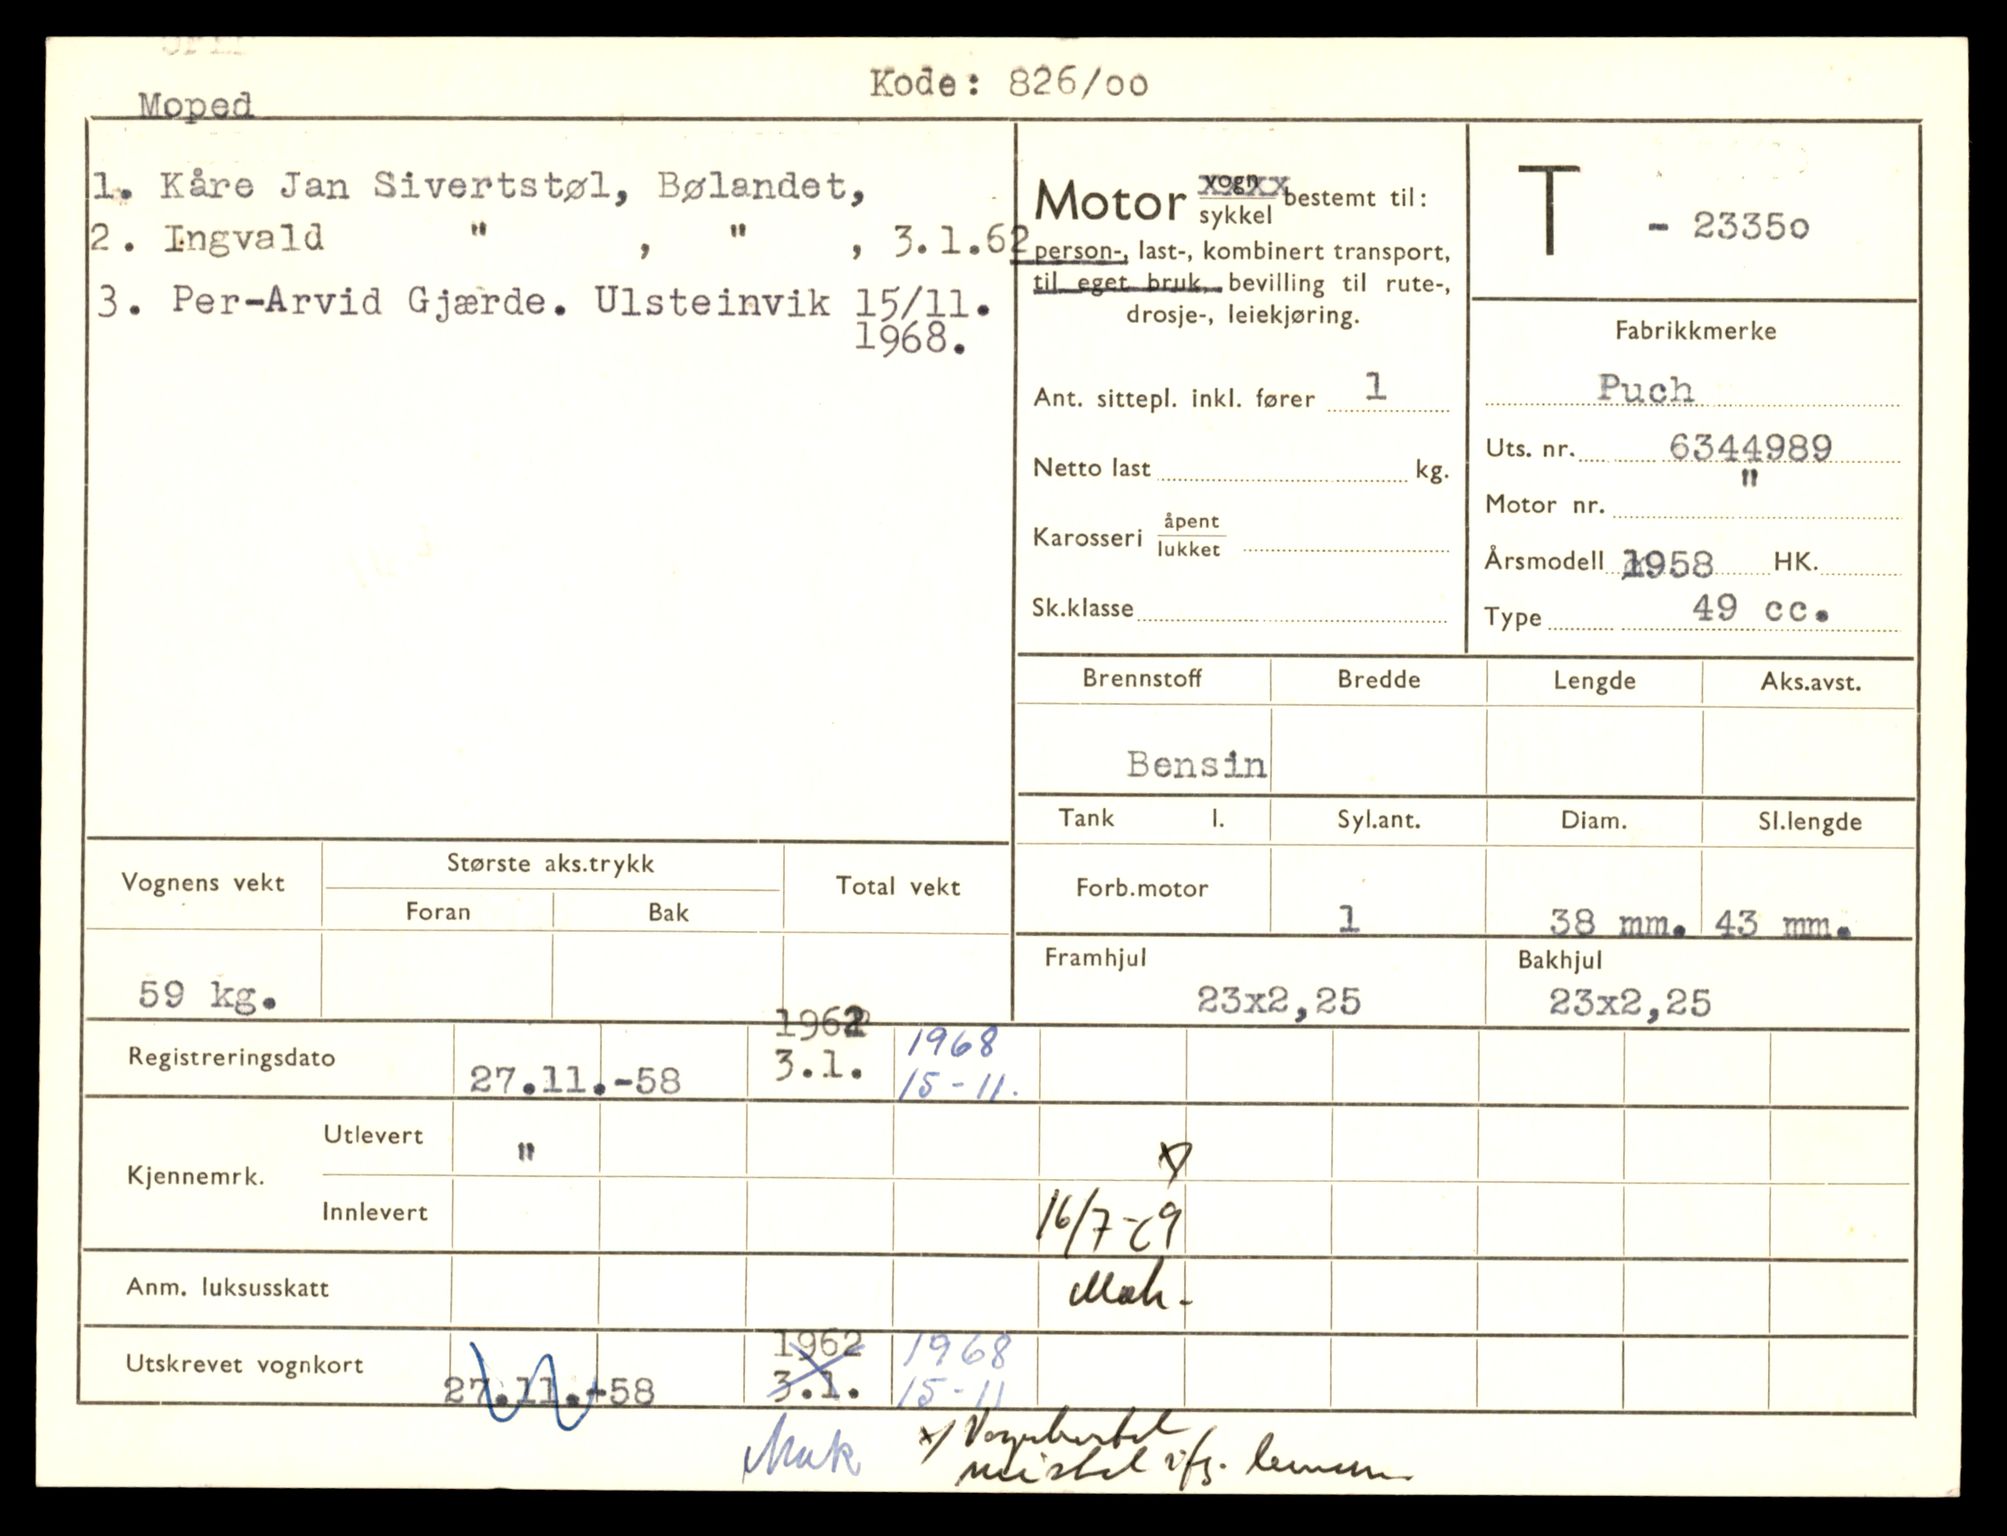 Kode: 826/oo
Moped
1. Kåre Jan Sivertstøl, Bølandet,
2. Ingvald " , " , 3.1.62
3. Per-Arvid Gjærde. Ulsteinvik 15/11.
1968.
Motor vogn sykkel bestemt til:
person-, last-, kombinert transport,
til eget bruk, bevilling til rute-,
drosje-, leiekjøring.
Ant. sittepl. inkl. fører 1
Netto last kg.
Karosseri åpent lukket
Sk.klasse
T - 2335o
Fabrikkmerke
Puch
Uts. nr. 6344989
Motor nr. "
Årsmodell 1958 HK.
Type 49 cc.
Brennstoff Bredde Lengde Aks.avst.
Bensin
Tank l. Syl.ant. Diam. Sl.lengde
Forb.motor 1 38 mm. 43 mm.
Framhjul Bakhjul
23x2,25 23x2,25
Vognens vekt Største aks.trykk Total vekt
Foran Bak
59 kg.
1962 1968
Registreringsdato 27.11.-58 3.1. 15-11.
Kjennemrk. Utlevert "
Innlevert 16/7-69
Anm. luksusskatt
1962 1968
Utskrevet vognkort 27.11.-58 3.1. 15-11
x/ Vognkortet
mistet